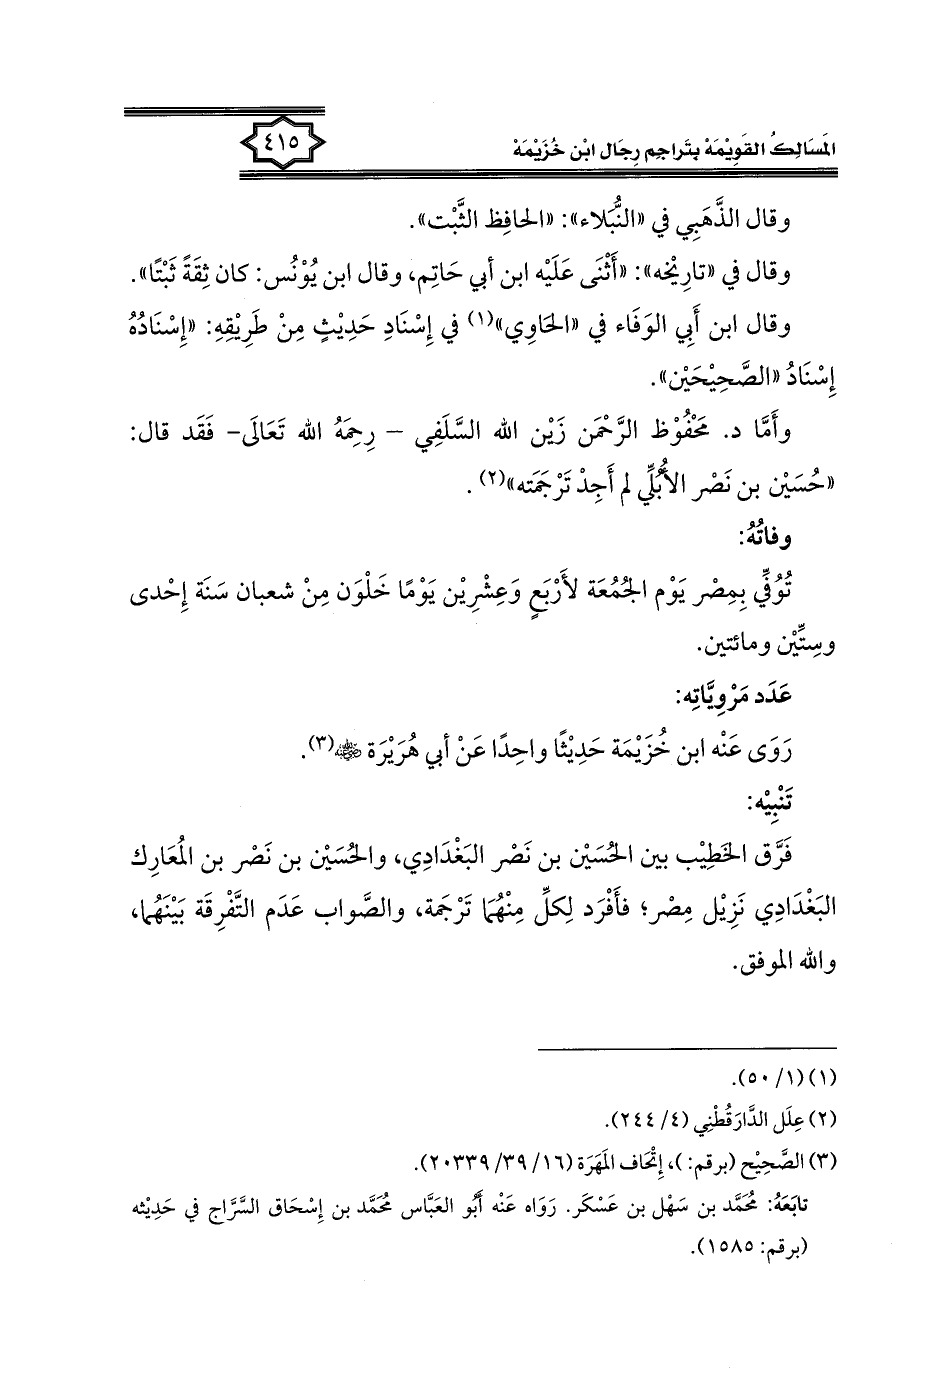 المَسَالِكُ القَوِيْمَهْ بِتَراجِم رِجَال ابْن خُزَيْمَهْ
٤١٥
وقال الذَّهَبِي في «النُّبَلاء»: «الحافِظ الثَّبْت».
وقال في «تارِيْخه»: «أَثْنَى عَلَيْه ابن أبي حَاتِم، وقال ابن يُوْنُس: كان ثِقَةً ثَبْتًا».
وقال ابن أَبِي الوَفَاء في «الحَاوِي»(١) في إِسْنَادِ حَدِيْثٍ مِنْ طَرِيْقِهِ: «إِسْنَادُهُ
إِسْنَادُ «الصَّحِيْحَيْن».
وأَمَّا د. مَحْفُوْظ الرَّحْمَن زَيْن الله السَّلَفِي – رحِمَهُ الله تَعَالَى– فَقَد قال:
«حُسَيْن بن نَصْر الأُبُلِّي لم أَجِدْ تَرْجَمَته»(٢).
وفاتُهُ:
تُوُفِّي بِمِصْر يَوْم الجُمُعَة لأَرْبَعٍ وَعِشْرِيْن يَوْمًا خَلَوْن مِنْ شعبان سَنَة إِحْدى
وسِتِّيْن ومائتين.
عَدَد مَرْوِيَّاتِه:
رَوَى عَنْه ابن خُزَيْمَة حَدِيْثًا واحِدًا عَنْ أبي هُرَيْرَة ﵁(٣).
تَنْبِيْه:
فَرَّق الخَطِيْب بين الحُسَيْن بن نَصْر البَغْدَادِي، والحُسَيْن بن نَصْر بن المُعَارِك
البَغْدَادِي نَزِيْل مِصْر؛ فأَفْرَد لِكلِّ مِنْهُمَا تَرْجَمَة، والصَّواب عَدَم التَّفْرِقَة بَيْنَهُما،
والله الموفق.
(١) (١/ ٥٠).
(٢) عِلَل الدَّارَقُطْنِي (٤/ ٢٤٤).
(٣) الصَّحِيْح (برقم: )، إِتْحَاف المَهَرَة (١٦/ ٣٩/ ٢٠٣٣٩).
تابَعَهُ: مُحَمَّد بن سَهْل بن عَسْكَر. رَوَاه عَنْه أَبُو العَبَّاس مُحَمَّد بن إِسْحَاق السَّرَّاج في حَدِيْثه
(برقم: ١٥٨٥).